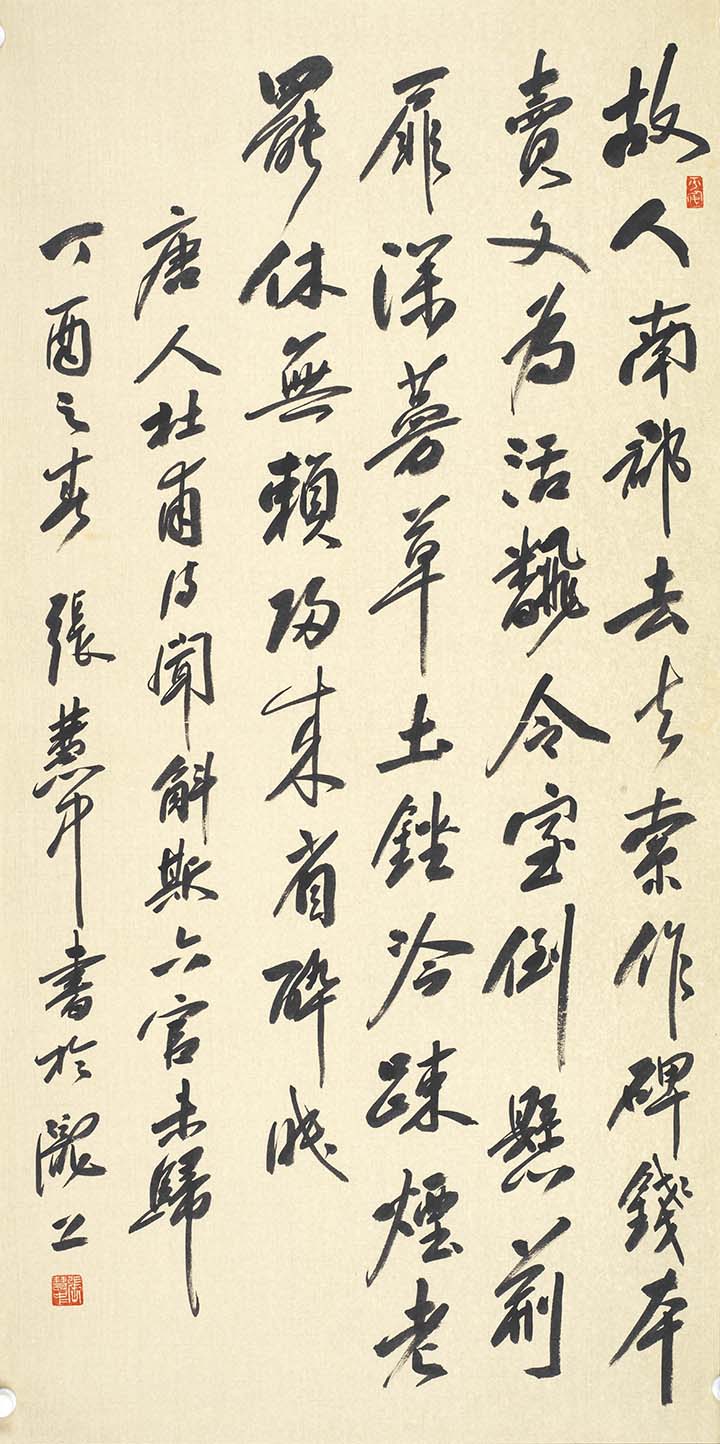 故人南郡去去索作碑錢本
賣文為活飜令室倒懸荊
扉深蔓草土銼冷踈煙老
罷休無賴歸來省醉眠
唐人杜甫詩聞斛斯六官未歸
丁酉之春 張慧中書於隴上
張慧中